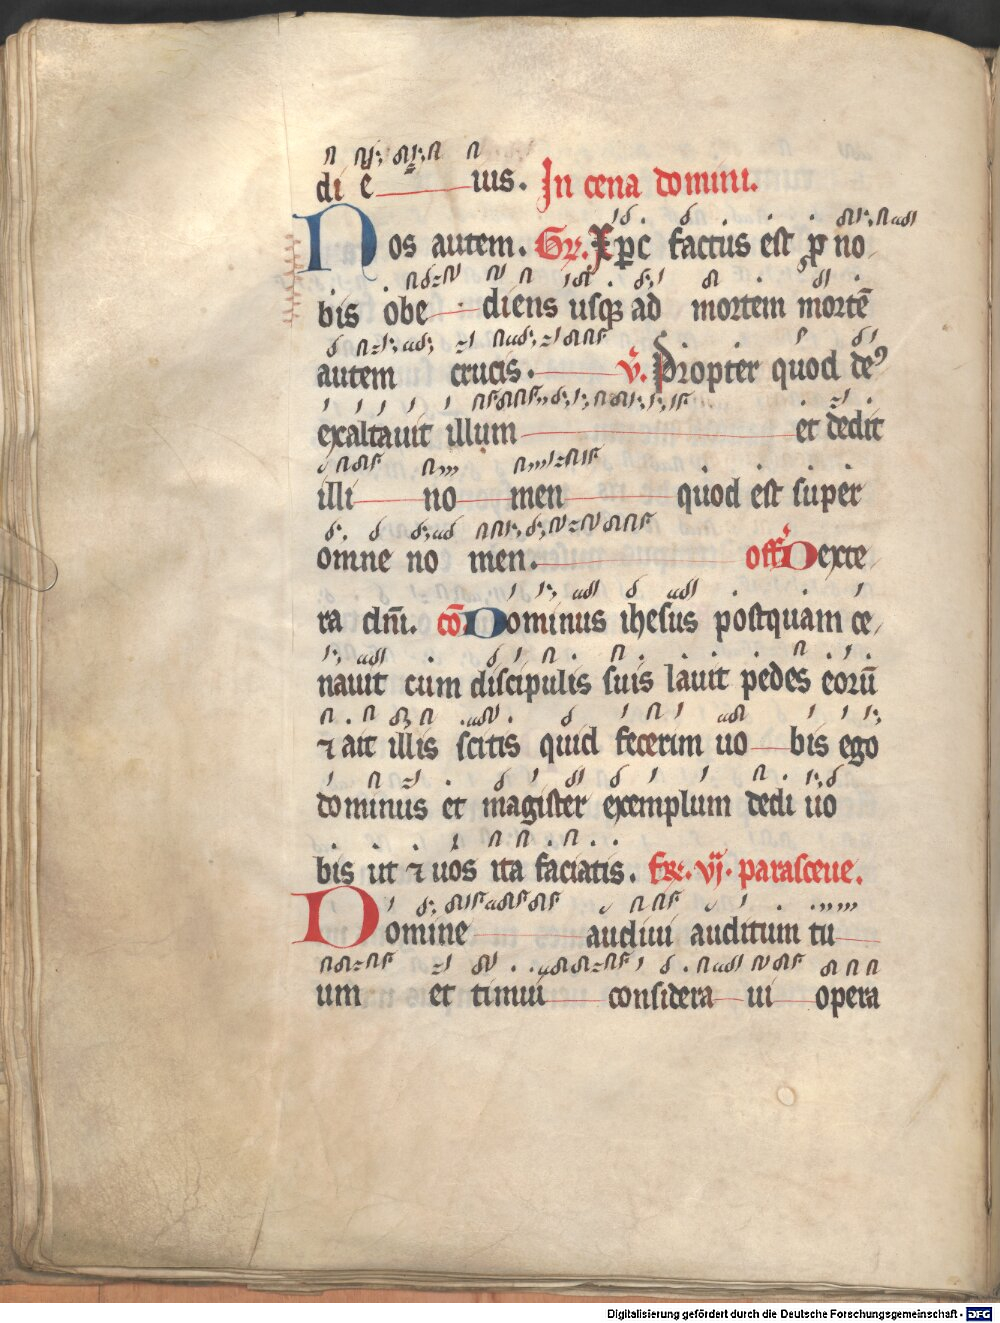 di eius. In cena domini.
Nos autem. Gr. Xpc factus est p no
bis obediens usq; ad mortem mortē
autem crucis. V. Propter quod de⁹
exaltauit illum et dedit
illi nomen quod est super
omne nomen. off Dexte
ra dn̄i. cō Dominus ihesus postquam ce
nauit cum discipulis suis lauit pedes eorū
⁊ ait illis scitis quid fecerim uobis ego
dominus et magister exemplum dedi uo
bis ut ⁊ uos ita faciatis. fr. vj. parasceue.
Domine audiui auditum tu
um et timui considera ui opera
Digitalisierung gefördert durch die Deutsche Forschungsgemeinschaft - DFG